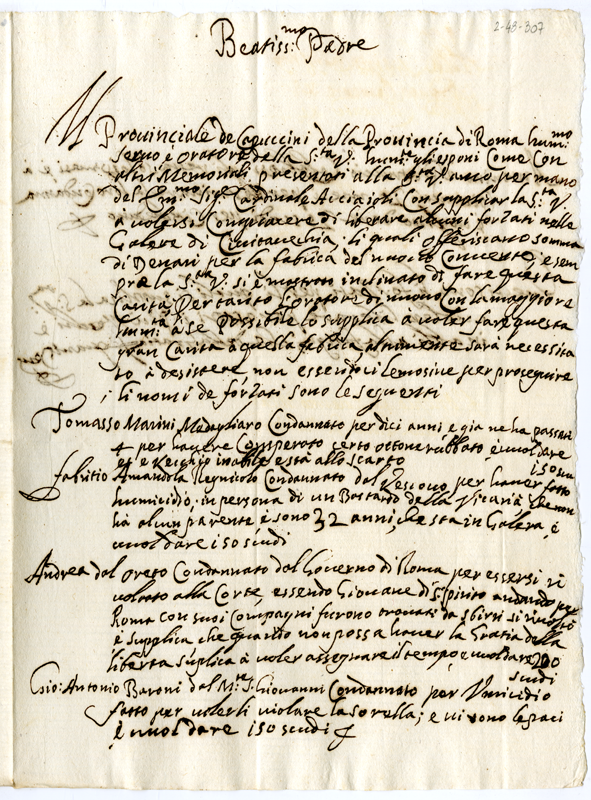 2-48-307
Beatiss:mo Padre
Il Prouinciale de Capuccini della Prouincia di Roma hum:mo
seruo è Oratore della S:ta V:ra hum:te gli esponi Come Con
altri Memoriali presentati alla S:ta V:ra anco per mano
del Em:mo Sig:r Cardinale Acciaioli Con supplicar la S:ta V:
a volersi Compiacere di liberare alcuni forzati nelle
Galere di Ciuitauechia, li quali offeriscano somma
di Denari per la fabrica del nuouo Conuento, e sem
pre la S:ta V:ra si è mostrato inclinato di fare questa
Carità, Per tanto l'oratore di nuouo Con la maggiore
humi:tà à se possibile lo supplica à voler fare questa
gran Carità à quella fabrica, altrimente sarà necessita
to à desistere non essendoci elemosine per proseguire
; li nomi de forzati sono le seguenti
Tomasso Marini Condannato per dieci anni, e già ne ha passati
4 per hauere Comperato certo ottone rubbato, è vuol dare
et è vecchio inabile e stà allo scarto 150 scu
Fabritio Amandola Regnicolo Condannato dal Vescouo per hauer fatto
humicidio, in persona di un Bastardo della Vicaria che non
hà alcun parente è sono 32 anni, che sta in Galera, è
vuol dare 150 scudi
Andrea dal Oreto Condannato dal Gouerno di Roma per essersi ri
uoltato alla Corte, essendo Giouane di S: Spirito andando per
Roma con suoi Compagni furono trouati da sbirri si riuoltò
è supplica che quando non possa hauer la Gratia della
libertà suplica à voler assegnare il tempo, e vuol dare 200
scudi
Gio: Antonio Baroni dal M:te S. Giouanni Condannato per Vmicidio
fatto per volerli violare la sorella; e vi sono le paci
è vuol dare 150 scudi